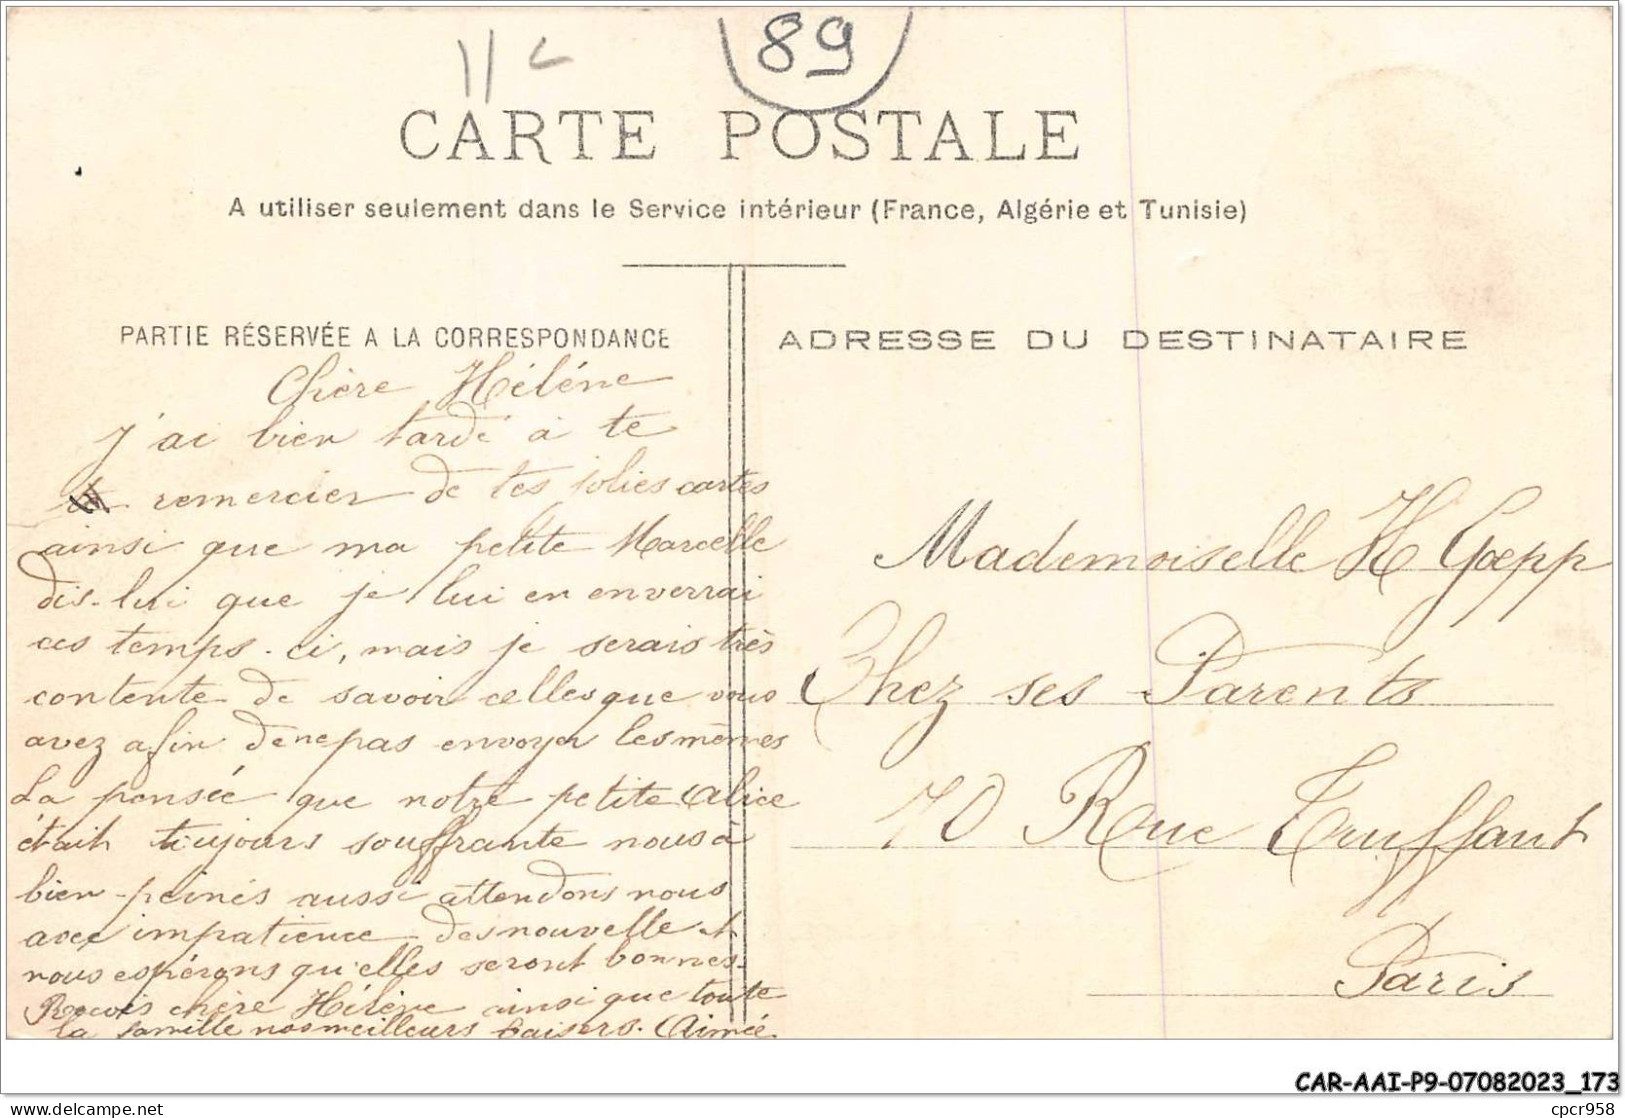 11 c
89
CARTE POSTALE
A utiliser seulement dans le Service intérieur (France, Algérie et Tunisie)
PARTIE RÉSERVÉE A LA CORRESPONDANCE
ADRESSE DU DESTINATAIRE
Chère Hélène
j'ai bien tardé à te
remercier de tes jolies cartes
ainsi que ma petite Marcelle
dis-lui que je lui en enverrai
ces temps-ci, mais je serais très
contente de savoir celles que vous
avez afin de ne pas envoyer les mêmes
La pensée que notre petite Alice
était toujours souffrante nous à
bien peinés aussi attendons nous
avec impatience des nouvelle et
nous espérons qu'elles seront bonnes.
Reçois chère Hélène ainsi que toute
la famille nos meilleurs baisers. Aimée
Mademoiselle H Goepp
Chez ses Parents
70 Rue Truffaut
Paris
CAR-AAI-P9-07082023_173
delcampe.net
cpcr958